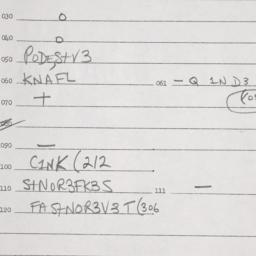 030 o
040 o
050 PODESTV3
060 KNAFL 061 – Q 1ND3
070 +
090 –
100 C1NK(212
110 STNOR3FK3S 111 –
120 FASTNOR3V3T(306